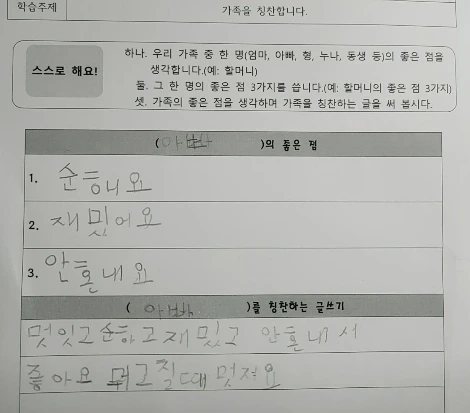 학습주제 가족을 칭찬합니다.
스스로 해요!
하나. 우리 가족 중 한 명(엄마, 아빠, 형, 누나, 동생 등)의 좋은 점을
생각합니다.(예: 할머니)
둘. 그 한 명의 좋은 점 3가지를 씁니다.(예: 할머니의 좋은 점 3가지)
셋. 가족의 좋은 점을 생각하며 가족을 칭찬하는 글을 써 봅시다.
( 아빠 )의 좋은 점
1. 순해요
2. 재밌어요
3. 안혼내요
( 아빠 )를 칭찬하는 글쓰기
멋있고 순하고 재밌고 안혼내서
좋아요 뭐고칠때 멋져요